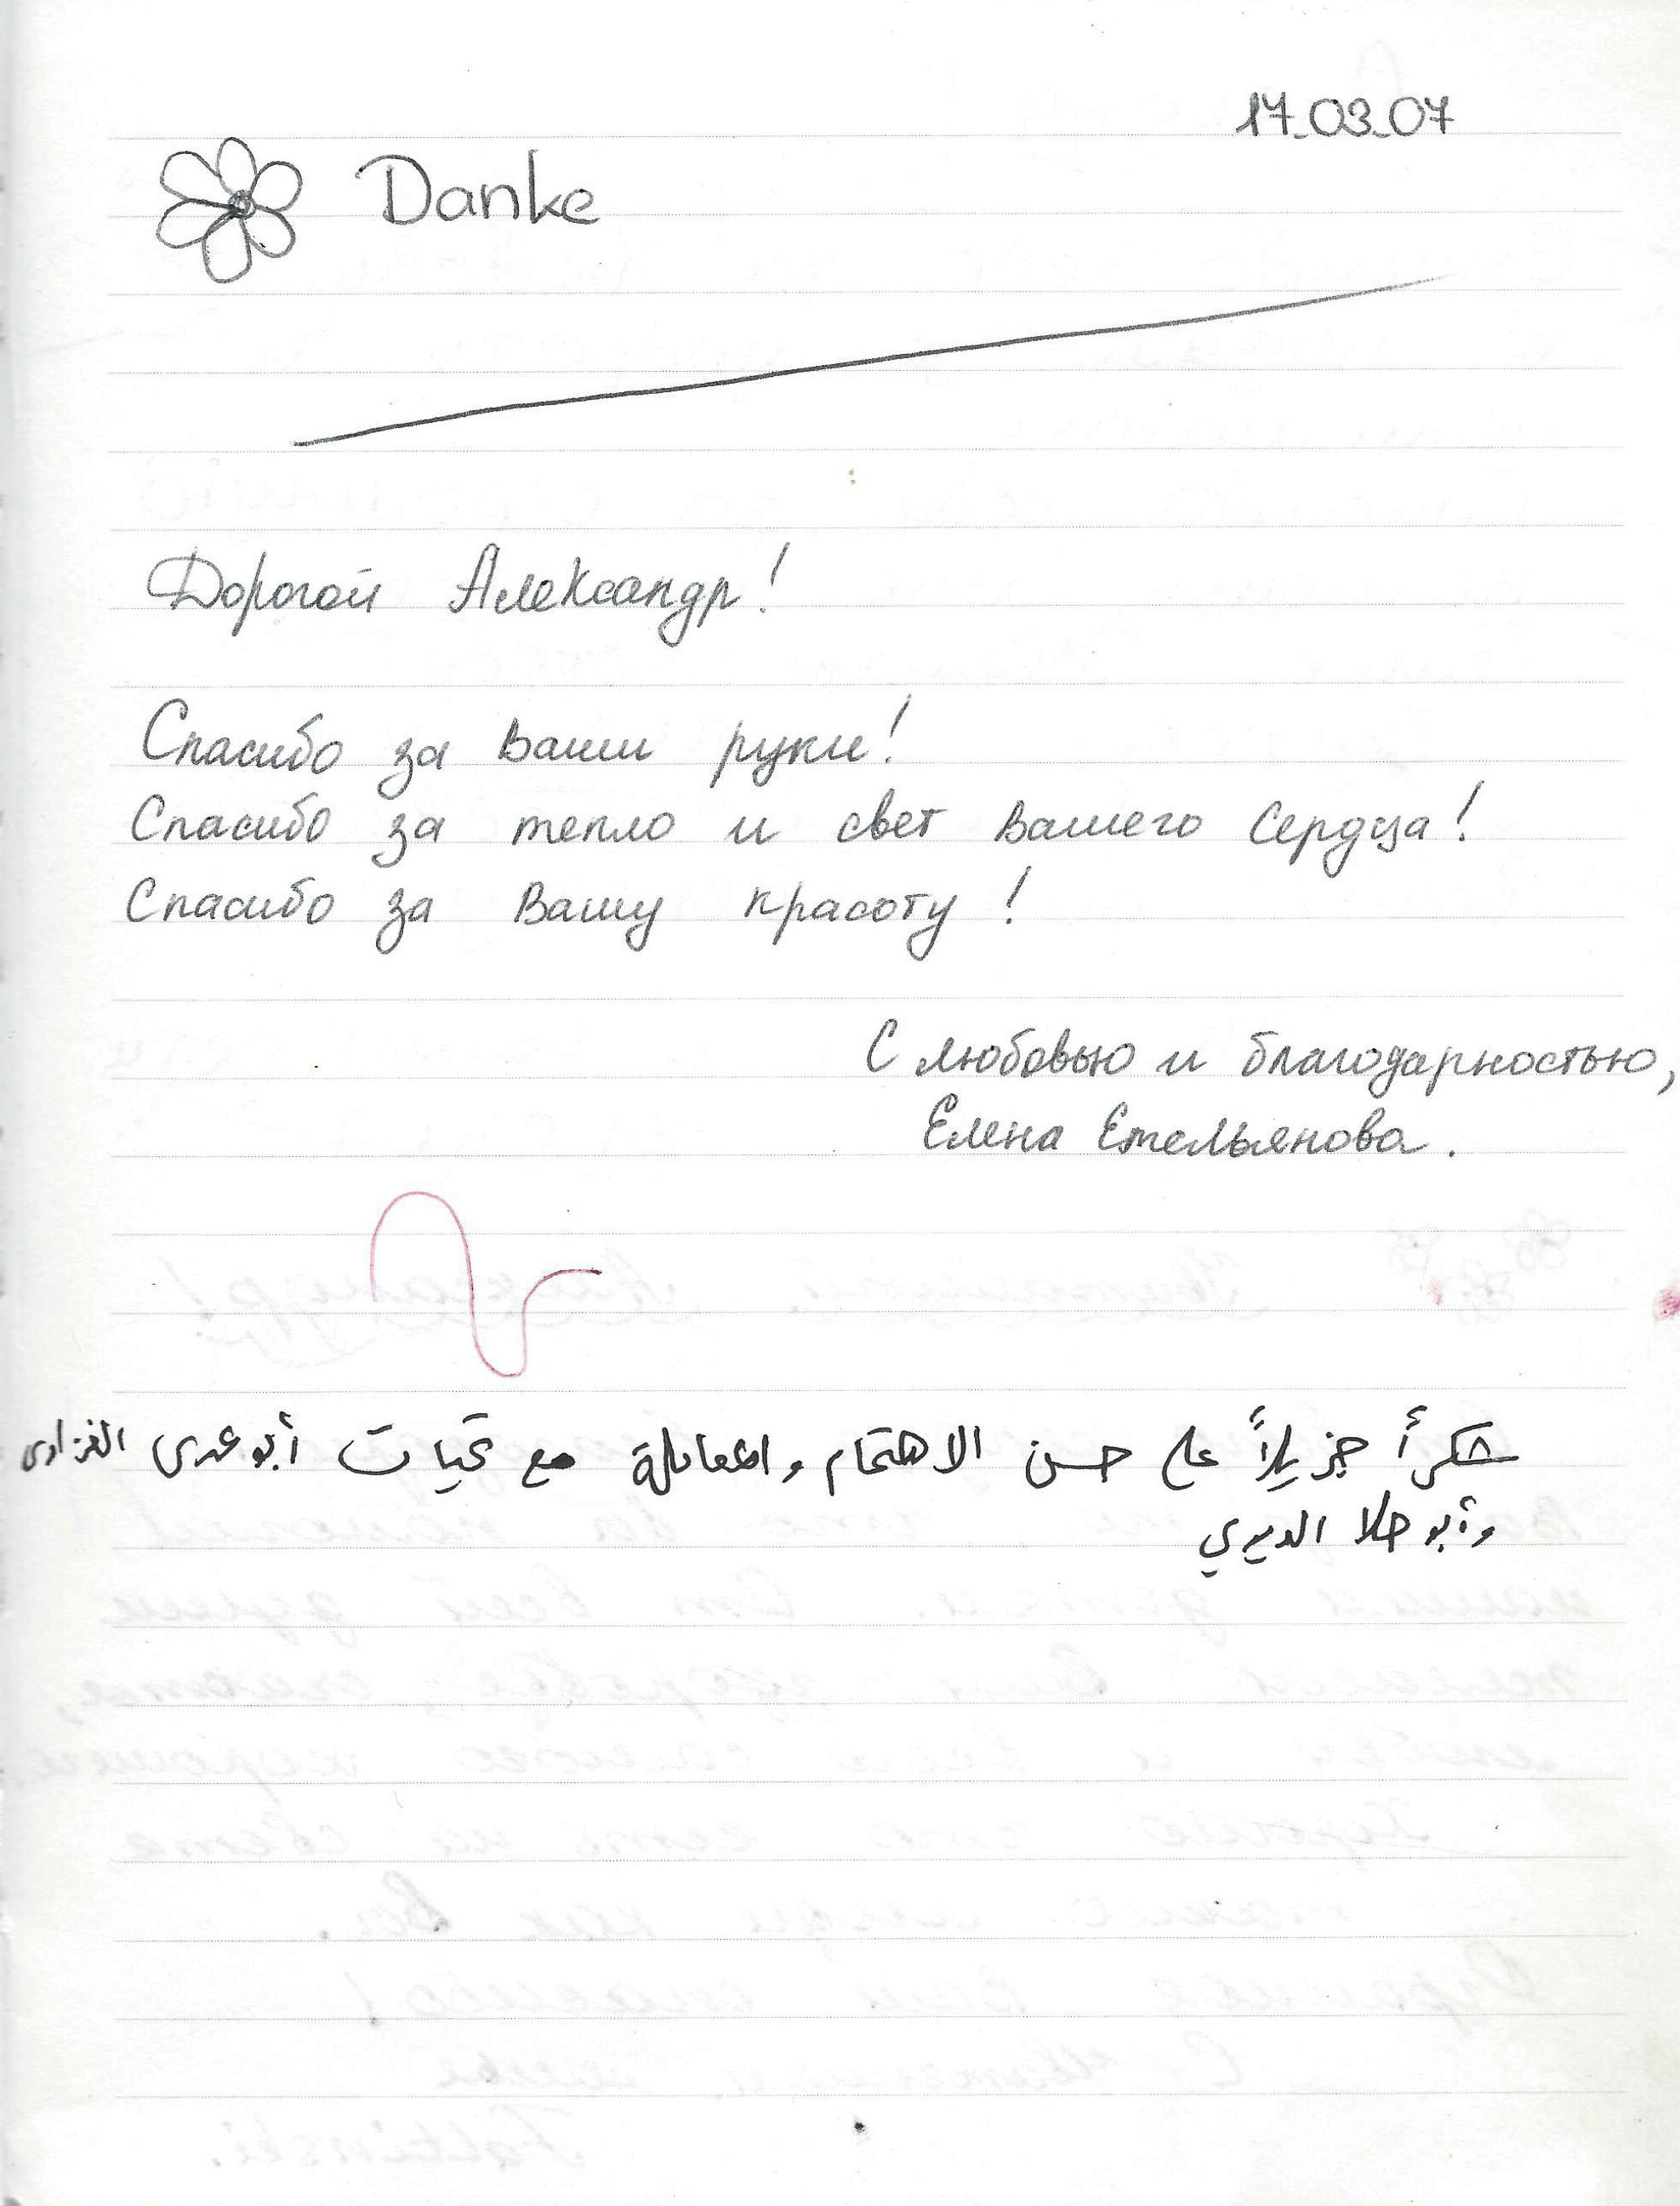 17.03.07
Danke
Дорогой Александр!
Спасибо за Ваши руки!
Спасибо за тепло и свет Вашего Сердца!
Спасибо за Вашу красоту!
С любовью и благодарностью,
Елена Емельянова.
شكراً جزيلاً على حسن الاهتمام والمعاملة مع تحيات أبو عدي
وأبو حلا